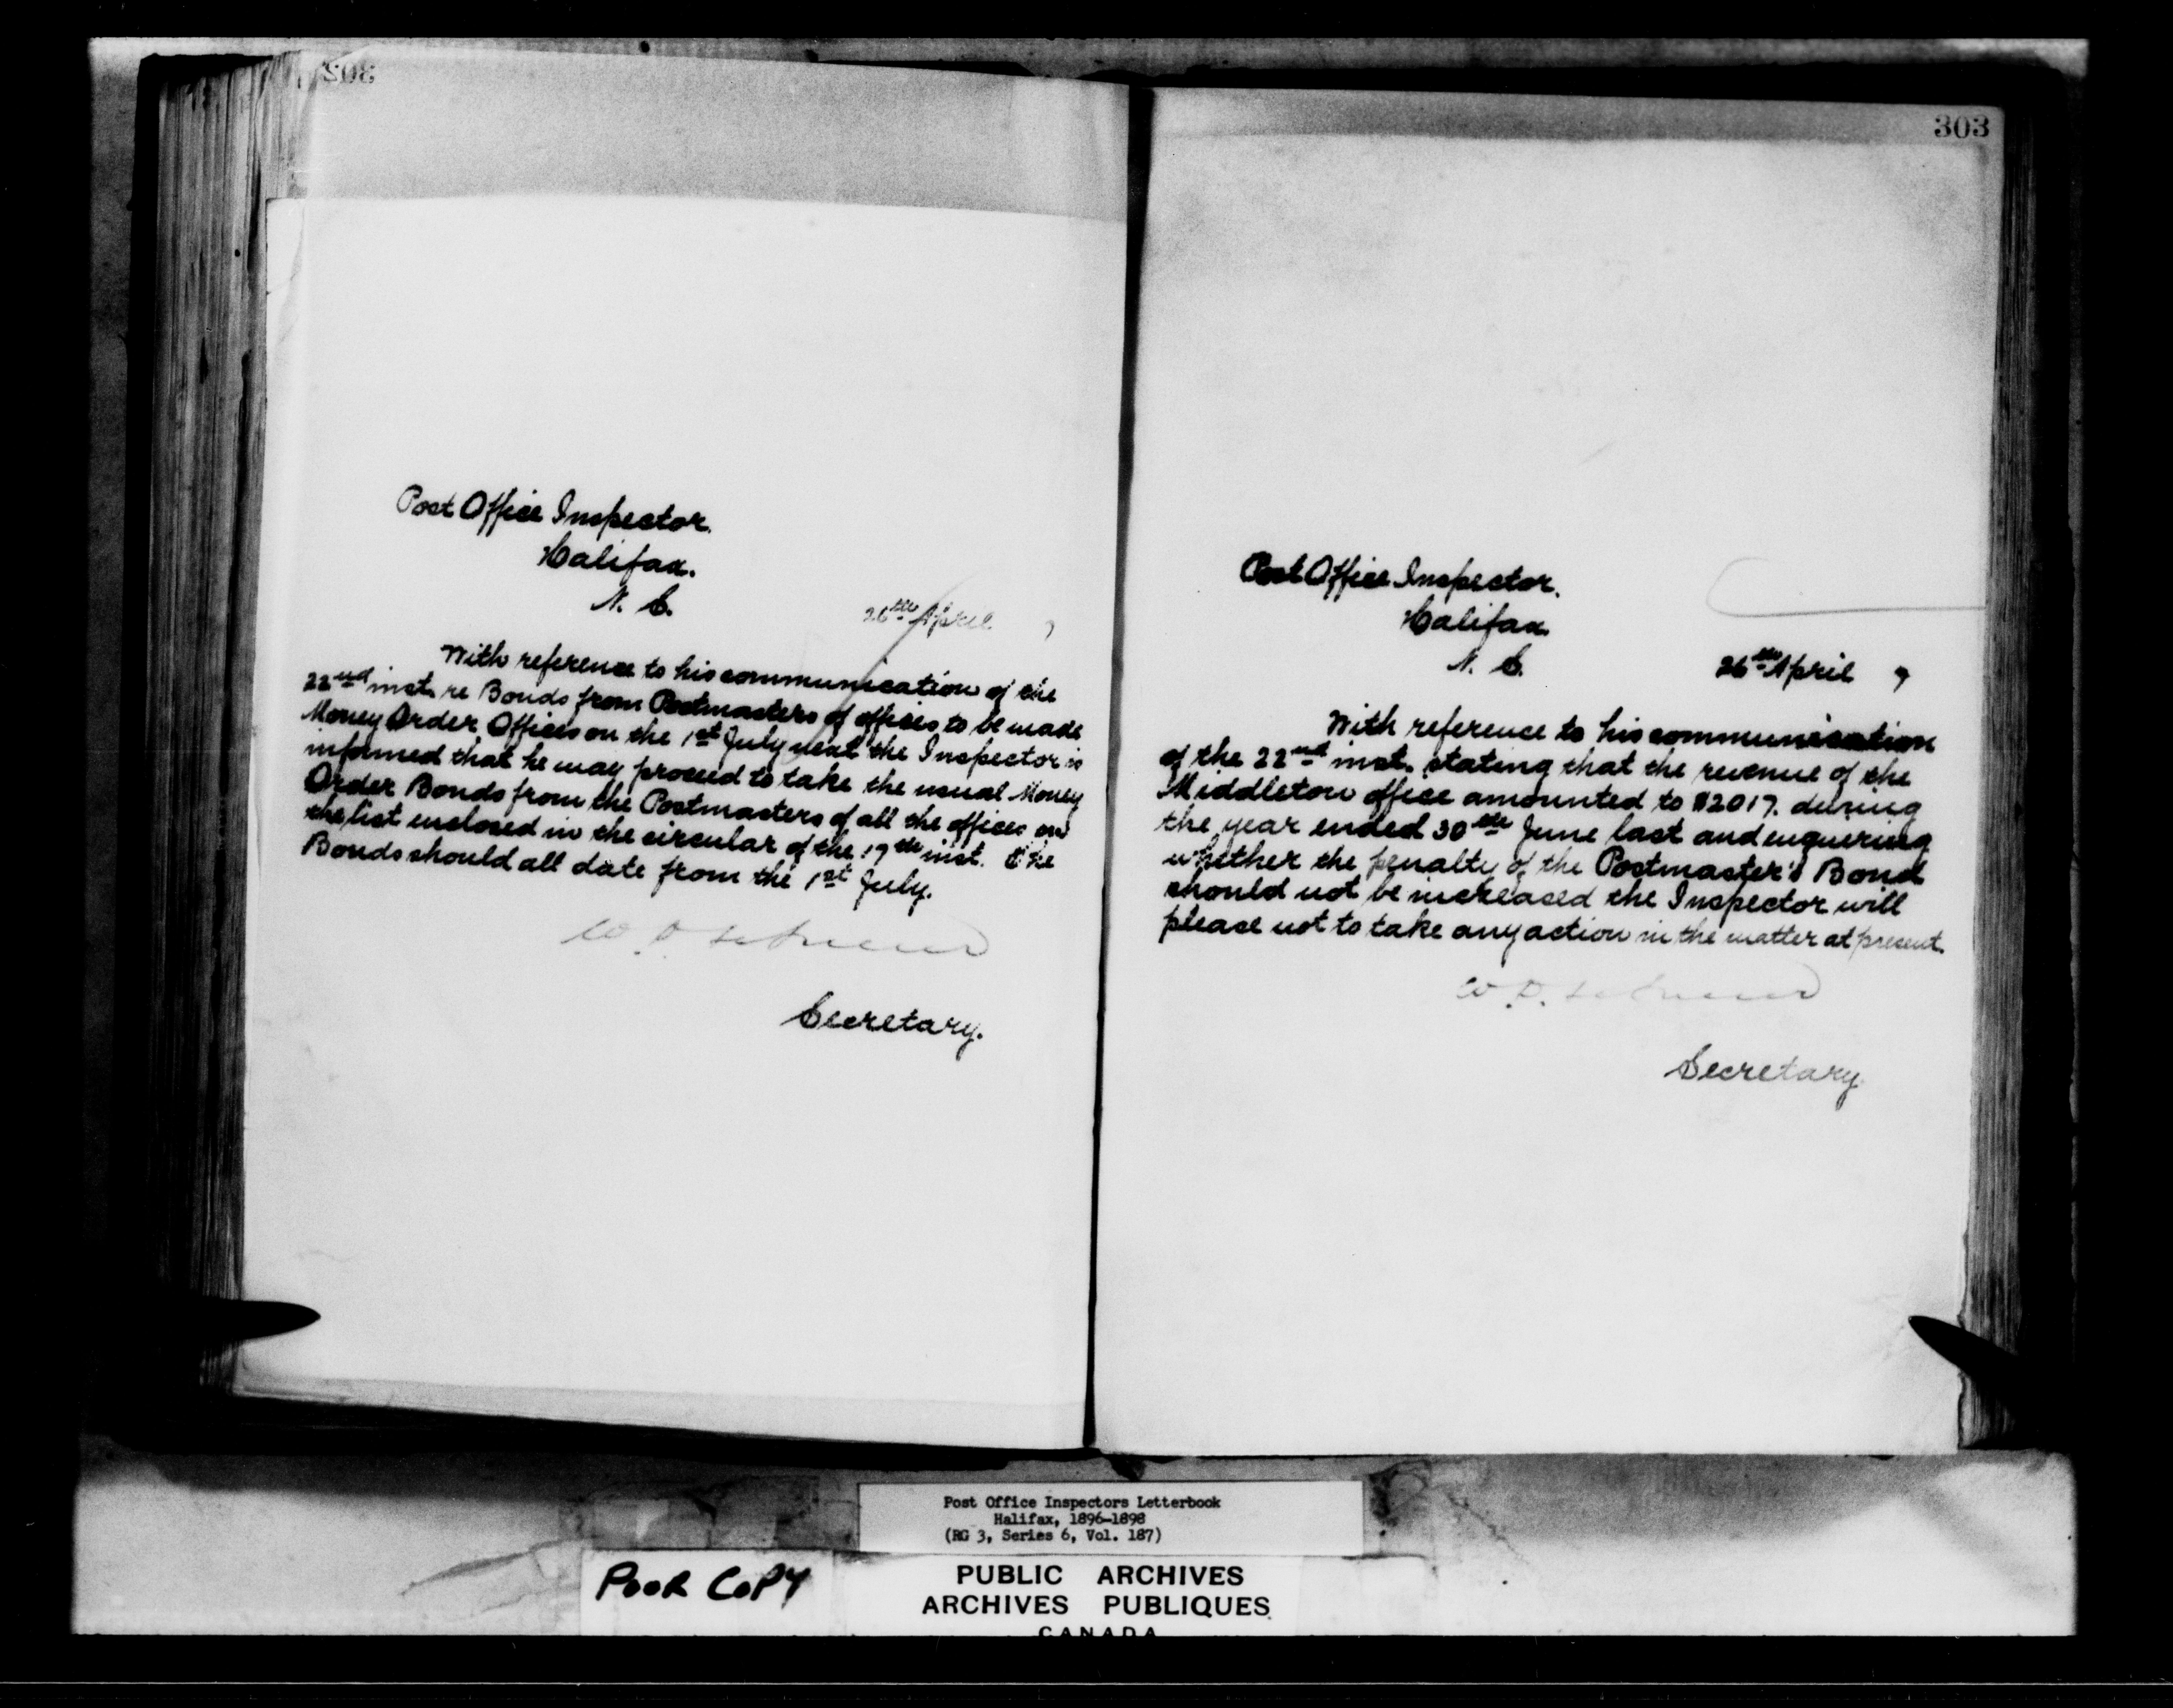 302
Post Office Inspector.
Halifax.
N. S.
26th April 7
With reference to his communication of the
22nd inst. re Bonds from Postmasters of offices to be made
Money Order Offices on the 1st July next the Inspector is
informed that he may proceed to take the usual Money
Order Bonds from the Postmasters of all the offices on
the list enclosed in the circular of the 17th inst. The
Bonds should all date from the 1st July.
Secretary.
303
Post Office Inspector.
Halifax.
N. S.
26th April 7
With reference to his communication
of the 22nd inst. stating that the revenue of the
Middleton office amounted to $2017. during
the year ended 30th June last and enquering
whether the penalty of the Postmaster's Bond
should not be increased the Inspector will
please not to take any action in the matter at present.
Secretary.
Post Office Inspectors Letterbook
Halifax, 1896-1898
(RG 3, Series 6, Vol. 187)
POOR COPY
PUBLIC ARCHIVES
ARCHIVES PUBLIQUES
CANADA